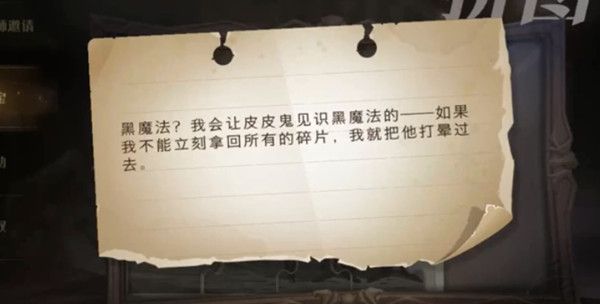 拼图
师邀请
黑魔法？我会让皮皮鬼见识黑魔法的——如果
我不能立刻拿回所有的碎片，我就把他打晕过
去。